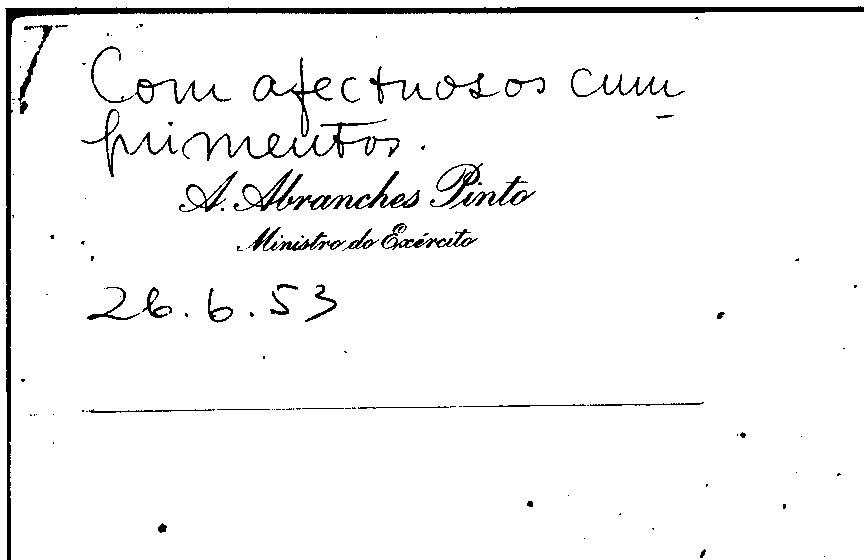 Com afectuosos cum
primentos.
A. Abranches Pinto
Ministro do Exército
26.6.53